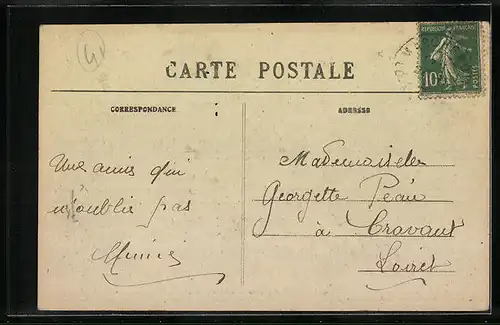 4
CARTE POSTALE
CORRESPONDANCE
ADRESSE
REPUBLIQUE FRANÇAISE
10c
POSTES
Une amie qui
n'oublie pas
Mademoiselle
Georgette Péau
à Cravant
Loiret